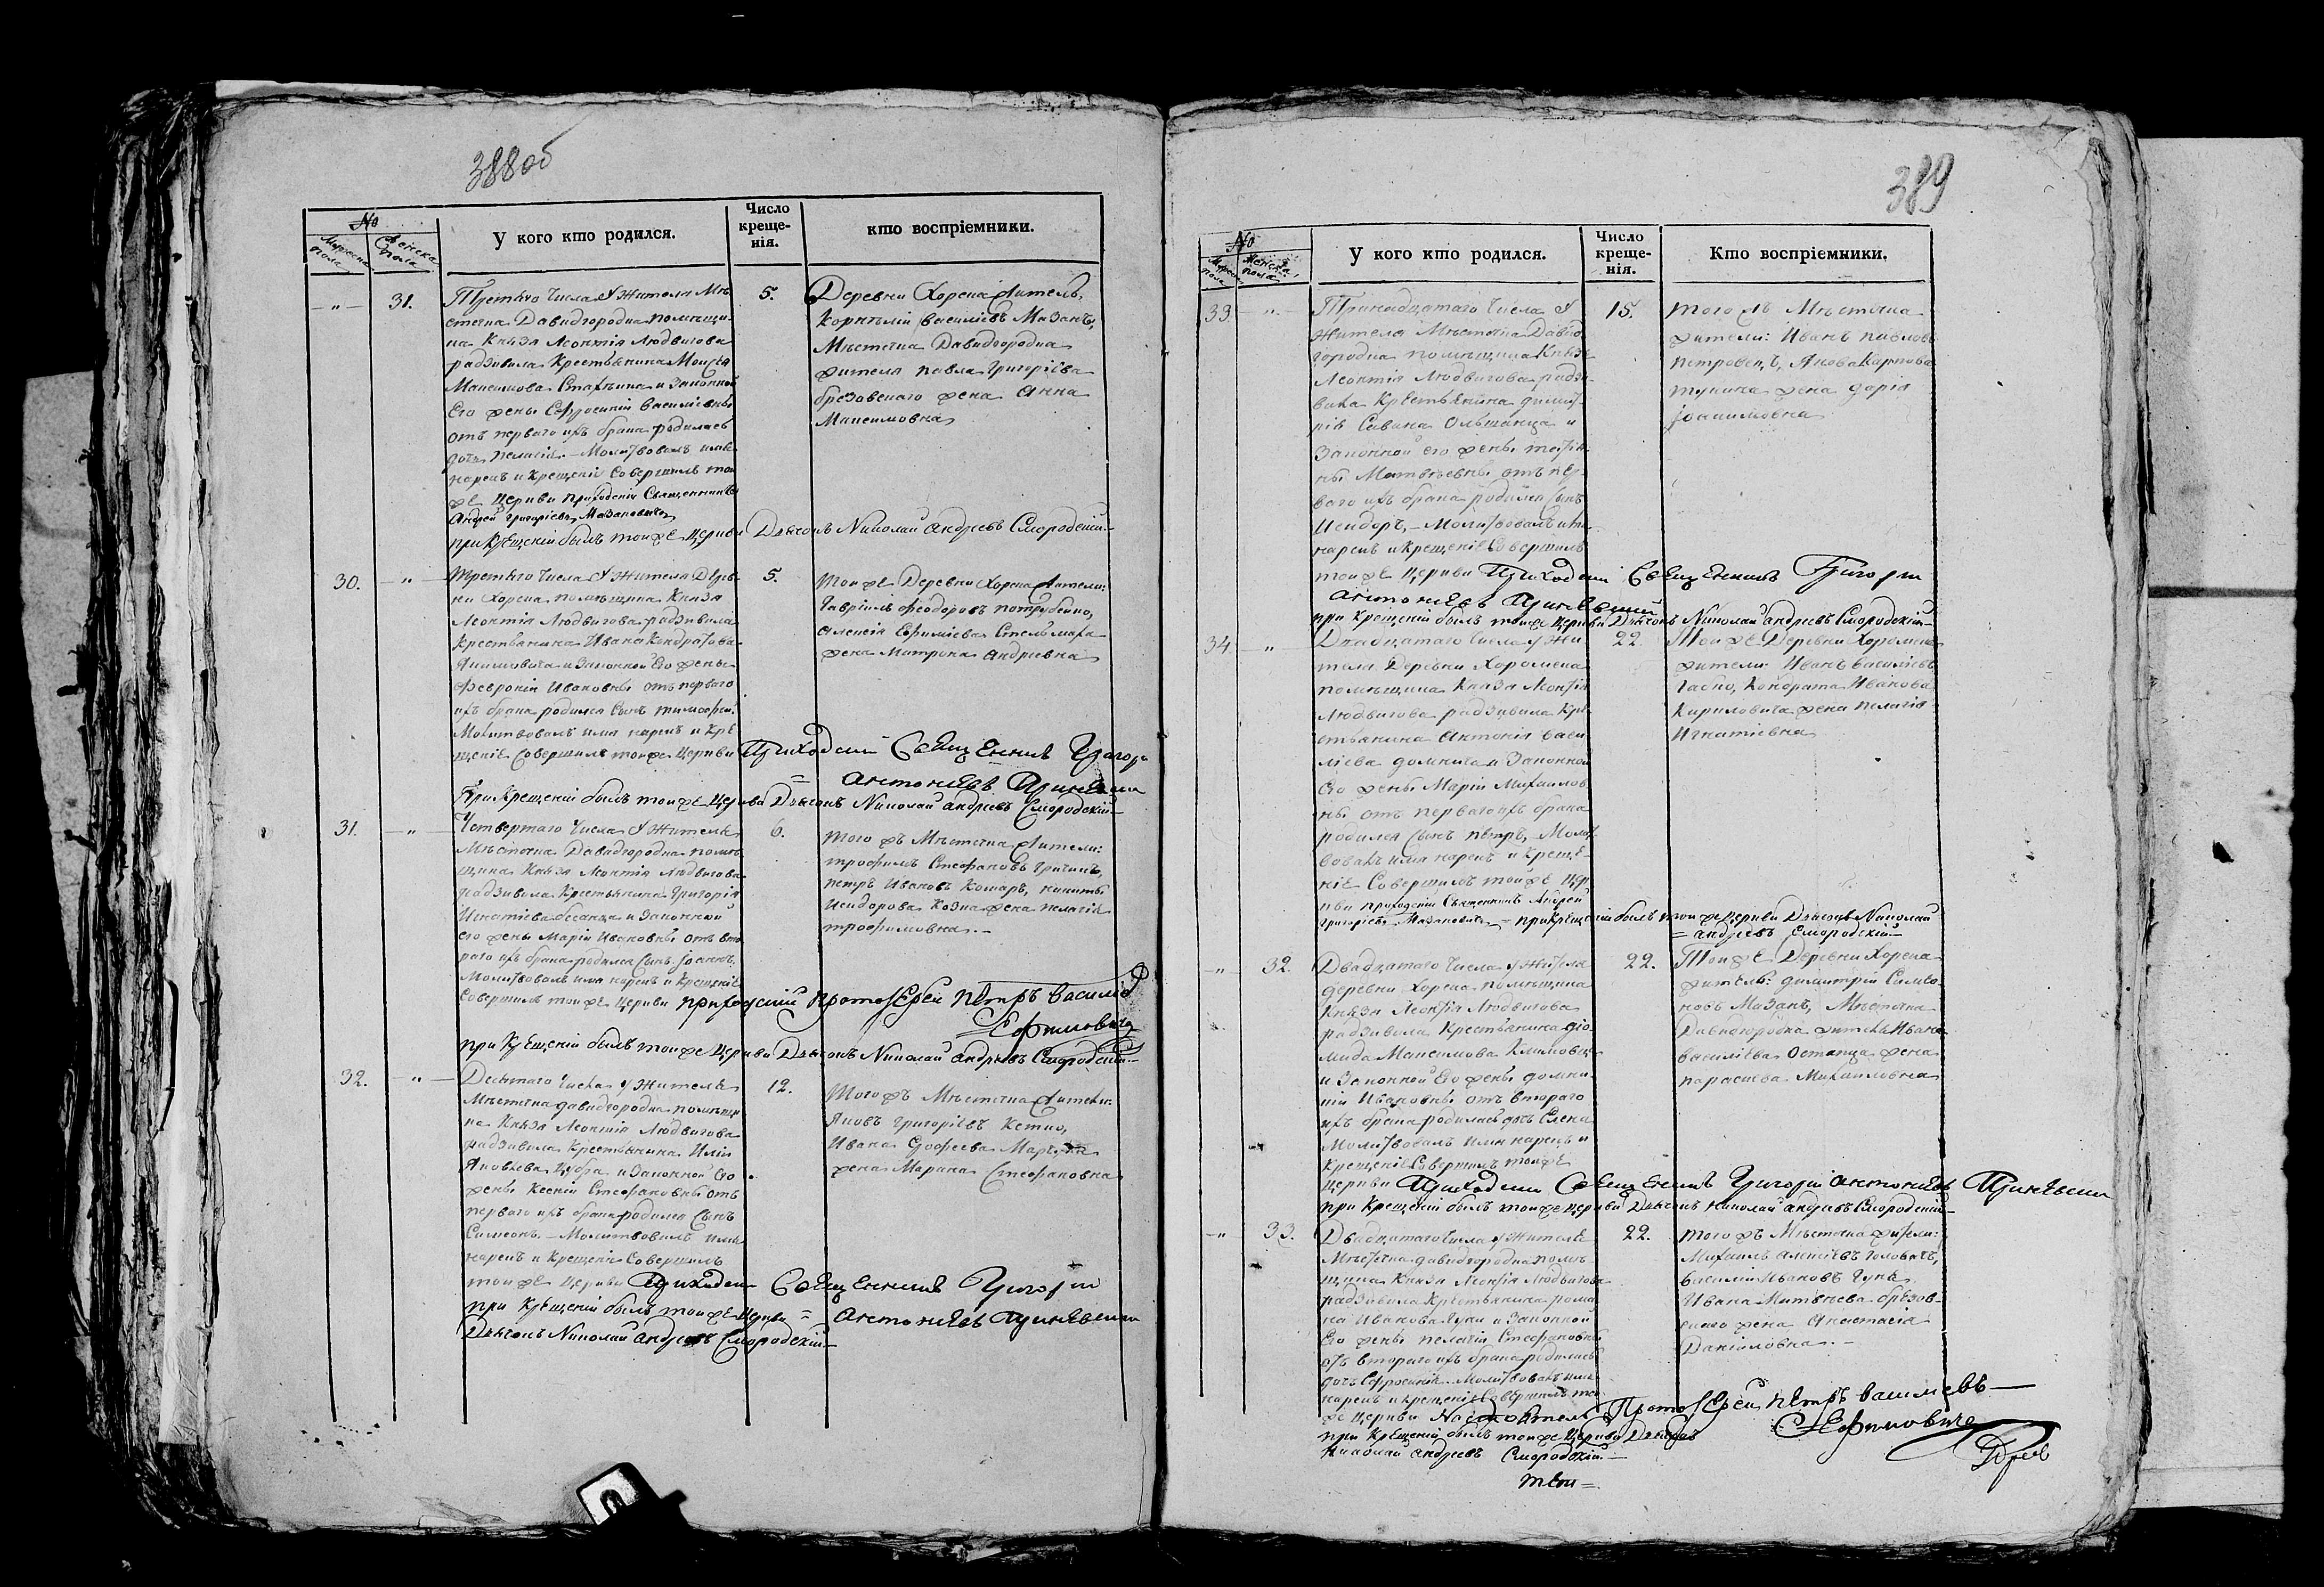 388об
№
Мужеска пола
Женска пола
У кого кто родился.
Число креще-
нія.
кто воспріемники.
31.
Третьяго числа У Жителя Мѣ
стечка Давидгородка помѣщи-
ка Князя Леонтія Людвигова
радзивила Крестьянина Моисея
Максимова и Законной
Его жены Евфросиніи Василіевны
отъ перваго ихъ брака родилась
дочь пелагія. – Молитвовалъ имя
нарекъ и Крещеніе Совершилъ той
же Церкви приходскій Священникъ
Андрей Григоріевъ Мазановичъ
при Крещеніи былъ тойже Церкви Дьячокъ Николай Андреевъ Смородскій–
5.
Деревни Хорска Житель,
Корнилій Василіевъ Мазанъ,
Мѣстечка Давидгородка
жителя павла Григоріева
брезовскаго жена Анна
Максимовна
30.
Третьяго Числа У Жителя Дерев-
ни Хорска помѣщика Князя
Леонтія Людвигова радзивила
Крестьянина Ивана Кондратова
Якимовича и Законной Его жены
Февроніи Ивановны отъ перваго
ихъ брака родился Сынъ тимофей.
Молитвовалъ имя нарекъ и Кре
щеніе Совершилъ тойже Церкви Приходскій Священникъ Григорій
= Антоніевъ
При Крещеніи былъ тойже Церкви Дьячокъ Николай андреевъ Смородскій–
5.
Тойже Деревни Хорска Жители:
Гавріилъ Феодоровъ
Алексія Ефиміева Стельмаха
жена Матрона Андреевна
31.
Четвертаго Числа У Жителя
Мѣстечка Давидгородка помѣ
щика Князя Леонтія Людвигова
радзивила Крестьянина Григорія
Игнатіева и Законной
его жены Маріи Ивановны отъ вто
раго ихъ брака родился Сынъ Іоаннъ,
Молитвовалъ имя нарекъ и Крещеніе
Совершилъ тойже Церкви приходскій протоіерей петръ василіевъ
Ефимовичъ
при Крещеніи былъ тойже Церкви Дьячокъ Николай андреевъ Смородскій–
6.
Того жъ Мѣстечка Жители:
трофимъ Стефановъ Гричикъ,
петръ Ивановъ Комаръ, никиты
Исидорова жена пелагія
трофимовна. –
32.
Десятаго Числа У Жителя
Мѣстечка давидгородка помѣщи
ка Князя Леонтія Людвигова
радзивила Крестьянина Иліи
Яковлева и Законной Его
жены Ксеніи Стефановны отъ
перваго ихъ брака родился Сынъ
Симеонъ. – Молитвовалъ имя
нарекъ и Крещеніе Совершилъ
тойже Церкви Приходскій Священникъ Григорій
при Крещеніи былъ тойже Церкви = Антоніевъ
Дьячокъ Николай андреевъ Смородскій–
12.
Того жъ Мѣстечка Жители:
Яковъ Григоріевъ
Ивана
жена Марина Стефановна
389
№
Мужеска пола
Женска пола
У кого кто родился.
Число креще-
нія.
Кто воспріемники.
33.
Тринадцатаго Числа У
Жителя Мѣстечка Давид
городка помѣщика Князя
Леонтія Людвигова радзи-
вила Крестьянина димит-
рія Савина Ольшанца и
Законной его жены татія-
ны Матвѣевны отъ пер-
ваго ихъ брака родился Сынъ
Исидоръ, – Молитвовалъ имя
нарекъ и Крещеніе Совершилъ
тойже Церкви Приходскій Священникъ Григорій
Антоніевъ
при Крещеніи былъ тойже Церкви Дьячокъ Николай андреевъ Смородскій–
15.
Того жъ Мѣстечка
жители: Иванъ павловъ
петровецъ, Якова Карпова
жена дарія
Іоакимовна
34.
Двадцатаго Числа У Жи-
теля Деревни Хоромска
помѣщика Князя Леонтія
Людвигова радзивила Кре-
стьянина Антонія Васи-
ліева и Законной
Его жены Маріи Михаилов
ны отъ перваго ихъ брака
родился Сынъ петръ, – Молит-
вовалъ имя нарекъ и Креще-
ніе Совершилъ тойже Цер-
кви приходскій Священникъ Андрей
Григоріевъ Мазановичъ – при Крещеніи былъ тойже Церкви Дьячокъ Николай
= андреевъ Смородскій–
22.
Тойже Деревни Хоромска
жители: Иванъ Василіевъ
Кондрата Иванова
Кириловича жена пелагія
Игнатіевна
32.
Двадцатаго Числа У Жителя
деревни Хорска помѣщика
Князя Леонтія Людвигова
радзивила Крестьянина діо-
мида Максимова
и Законной Его жены домни-
кіи Ивановны отъ втораго
ихъ брака родилась дочь Елена
Молитвовалъ имя нарекъ и
Крещеніе Совершилъ тойже
Церкви Приходскій Священникъ Григорій антоніевъ
при Крещеніи былъ тойже Церкви Дьячокъ Николай андреевъ Смородскій–
22.
Тойже Деревни Хорска
житель: димитрій Симео
новъ Мазанъ, Мѣстечка
Давидгородка жителя Ивана
василіева Остапца жена
параскева Михаиловна
33.
Двадцатаго Числа У Жителя
Мѣстечка давидгородка помѣ
щика Князя Леонтія Людвигова
радзивила Крестьянина рома
на Иванова и Законной
Его жены пелагіи Стефановны
отъ втораго ихъ брака родилась
дочь Евфросинія. Молитвовалъ имя
нарекъ и крещеніе Совершилъ той
же Церкви Настоятель Протоіерей петръ василіевъ –
Ефимовичъ
при Крещеніи былъ тойже Церкви Дьячокъ
Николай андреевъ Смородскій. –
22.
Того жъ Мѣстечка жители:
Михаилъ алексіевъ Головачъ,
Василій Ивановъ
Ивана Матвѣева брезов-
скаго жена Анастасія
Даніиловна. –